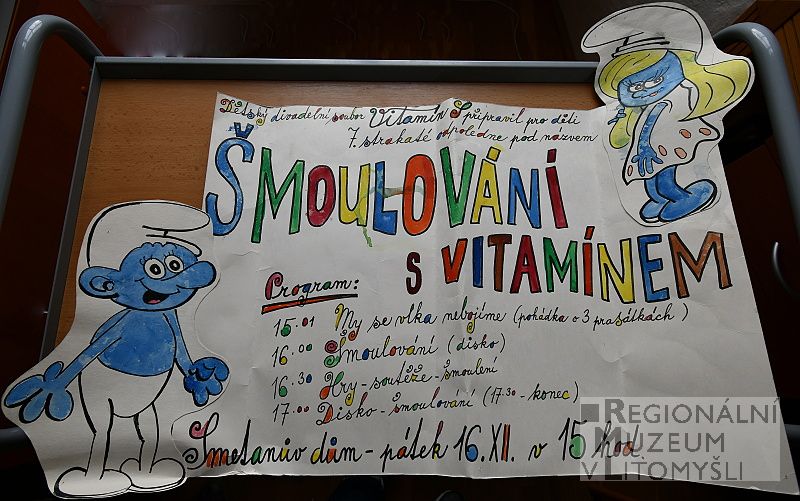 Dětský divadelní soubor Vitamín S připravil pro děti
7. strakaté odpoledne pod názvem
ŠMOULOVÁNÍ
S VITAMÍNEM
Program:
15.01 My se vlka nebojíme (pohádka o 3 prasátkách)
16.00 Šmoulování (disko)
16.30 Hry - soutěže - šmoulení
17.00 Disko - šmoulování (17.30 - konec)
Smetanův dům - pátek 16. XII. v 15 hod.
REGIONÁLNÍ
MUZEUM
V LITOMYŠLI